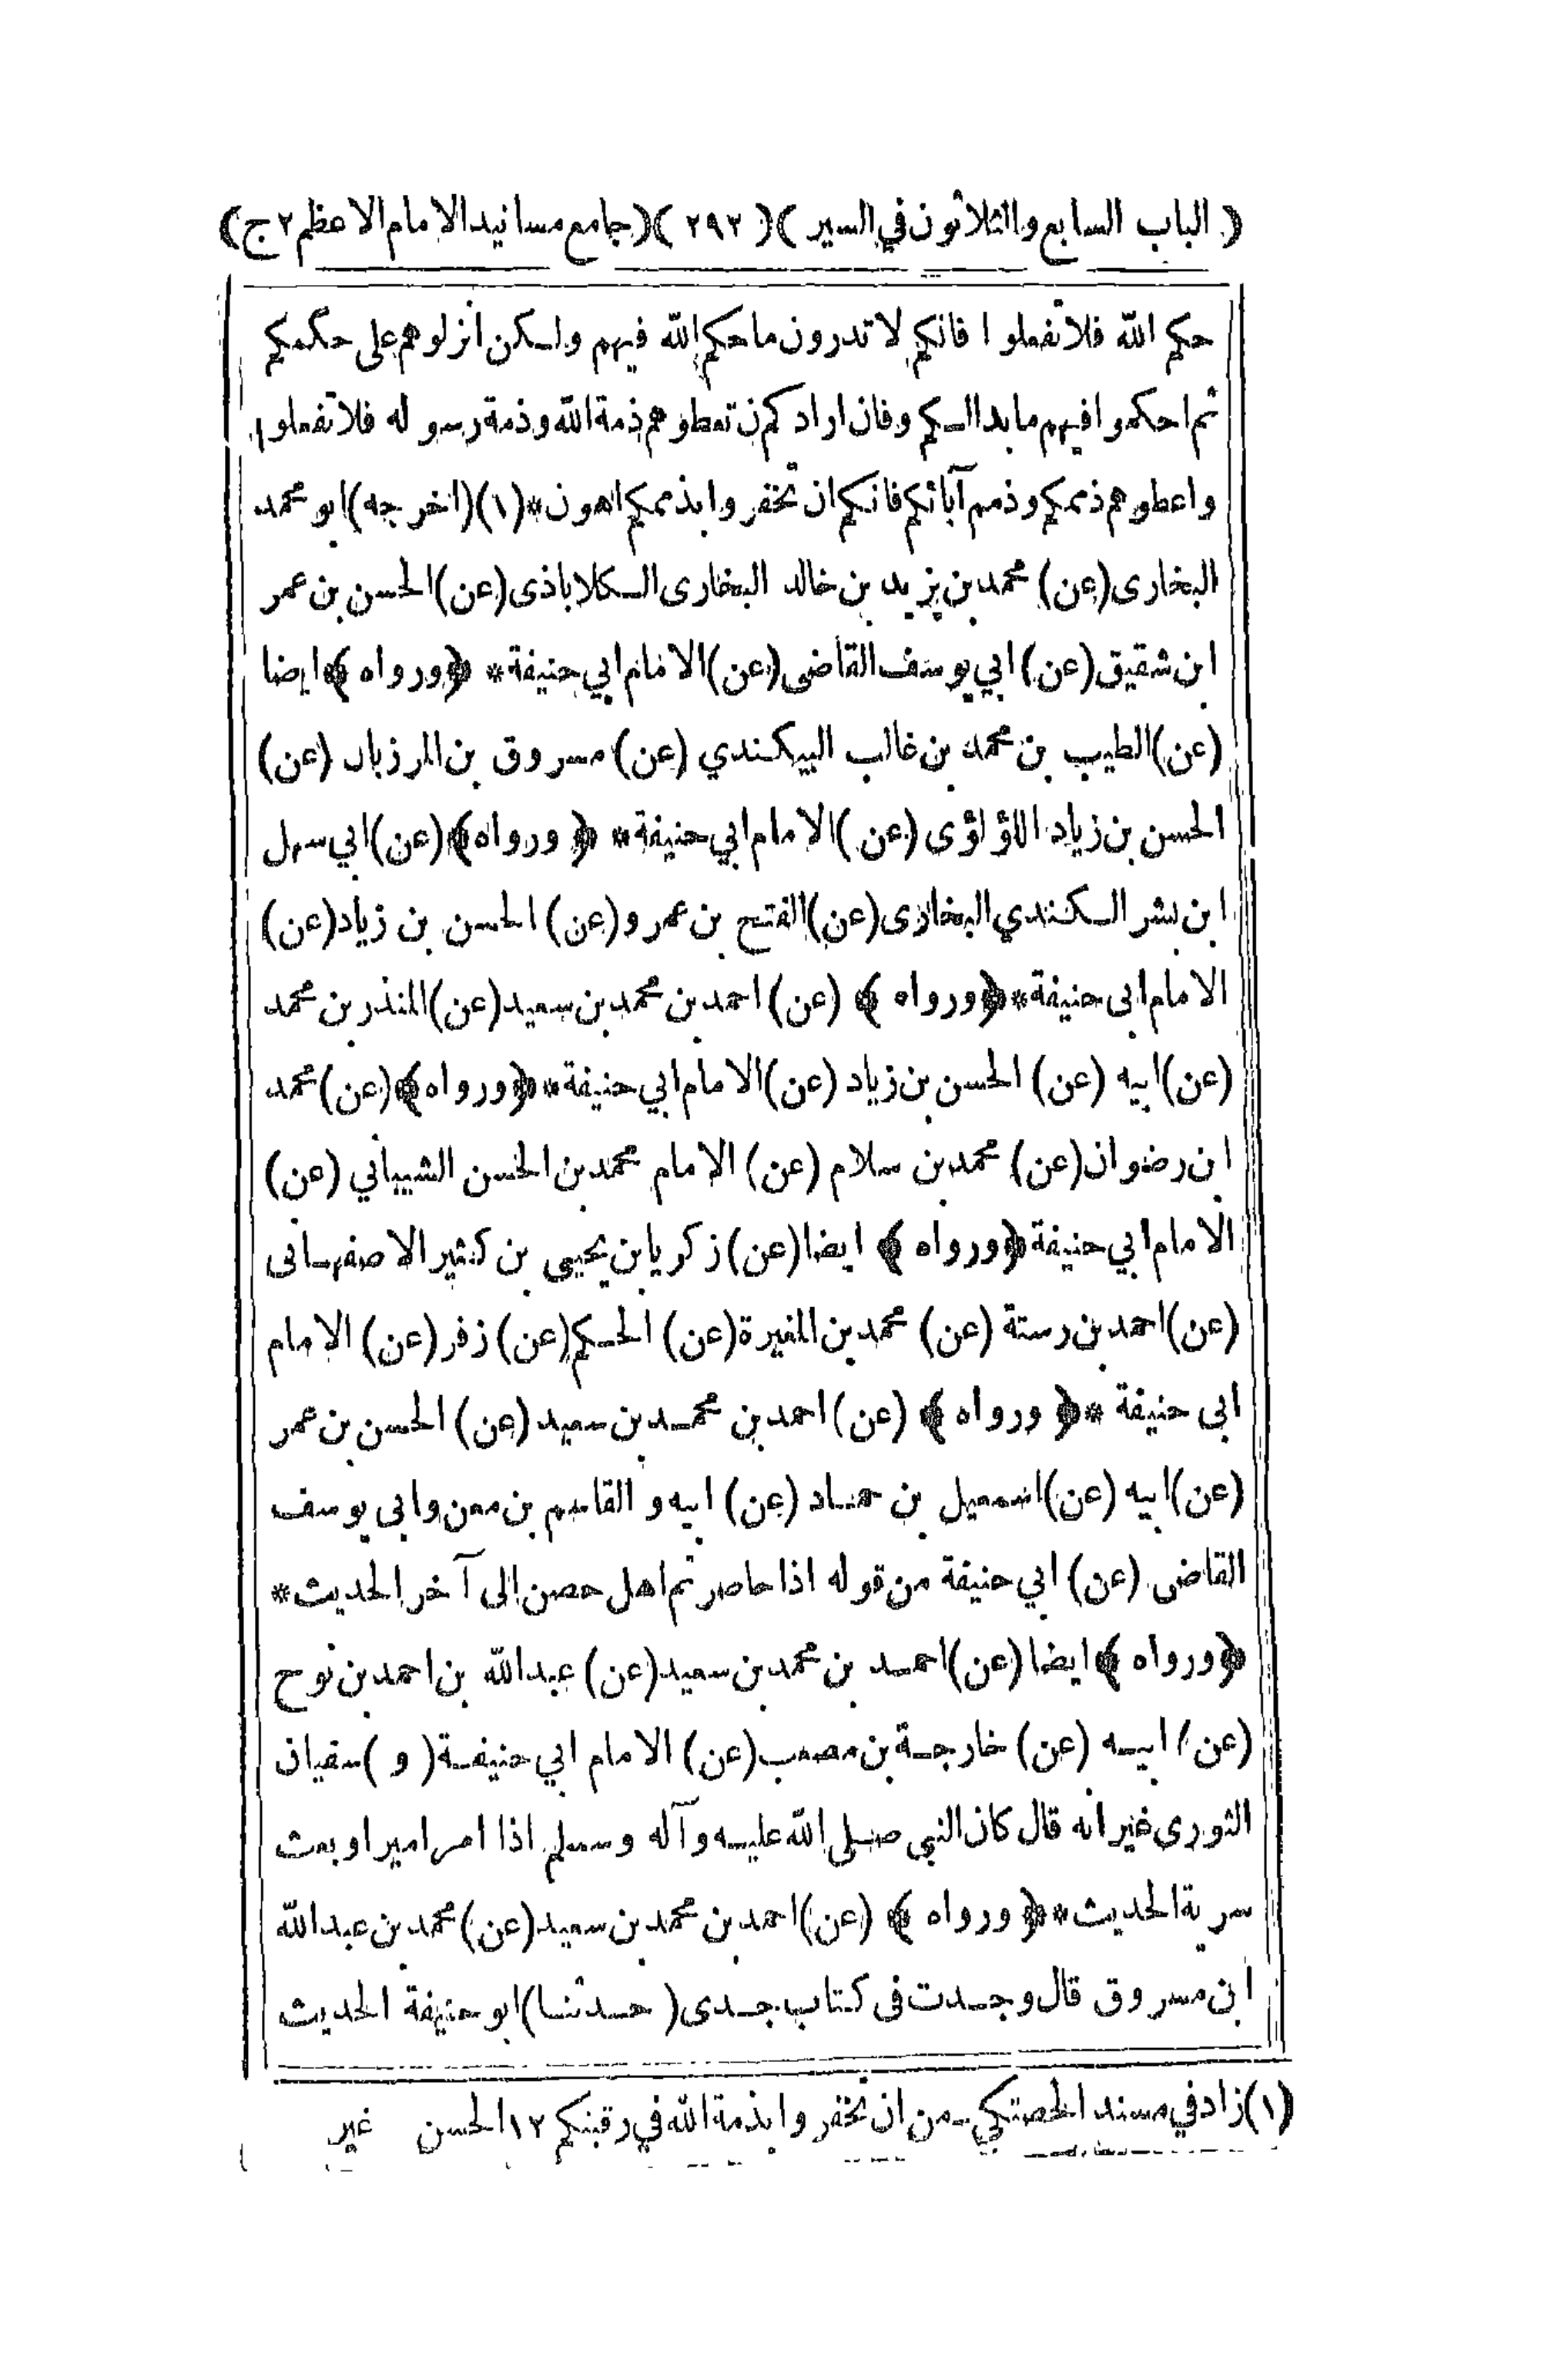 ( الباب السابع والثلاثون في السير )( ٢٩٣ )( جامع مسانيد الامام الاعظم ٢ ج)
حكم الله فلا تفعلوا فانكم لا تدرون ما حكم الله فيهم ولكن انزلوهم على حكمكم
ثم احكموا فيهم ما بدالكم وفان ارادكم ن تعطوهم ذمة الله وذمة رسوله فلا تفعلوا
واعطوهم ذممكم وذمم آبائكم فانكم ان تخفروا بذممكم اهون*(١)(اخرجه) ابو محمد
البخارى (عن) محمد بن يزيد بن خالد البخارى الكلاباذى (عن) الحسن بن عمر
ابن شقيق (عن) ابي يوسف القاضى (عن) الامام ابي حنيفة* ﴿ورواه﴾ ايضا
(عن) الطيب بن محمد بن غالب البيكندي (عن) مسروق بن المرزبان (عن)
الحسن بن زياد اللؤلؤى (عن) الامام ابي حنيفة* ﴿ ورواه﴾ (عن) ابي سهل
ابن بشر الكندي البخارى (عن) الفتح بن عمرو (عن) الحسن بن زياد (عن)
الامام ابى حنيفة* ﴿ورواه ﴾ (عن) احمد بن محمد بن سعيد (عن) المنذر بن محمد
(عن) ابيه (عن) الحسن بن زياد (عن) الامام ابي حنيفة* ﴿ورواه﴾ (عن) محمد
ابن رضوان (عن) محمد بن سلام (عن) الامام محمد بن الحسن الشيباني (عن)
الامام ابي حنيفة ﴿ورواه ﴾ ايضا (عن) زكريا بن يحيى بن كثير الاصفهانى
(عن) احمد بن رستة (عن) محمد بن المغيرة (عن) الحكم (عن) زفر (عن) الامام
ابى حنيفة *﴿ ورواه ﴾ (عن) احمد بن محمد بن سعيد (عن) الحسن بن عمر
(عن) ابيه (عن) اسمعيل بن حماد (عن) ابيه و القاسم بن معن وابى يوسف
القاضى (عن) ابي حنيفة من قوله اذا حاصرتم اهل حصن الى آخر الحديث*
﴿ورواه ﴾ ايضا (عن) احمد بن محمد بن سعيد (عن) عبد الله بن احمد بن نوح
(عن) ابيه (عن) خارجة بن مصعب (عن) الامام ابي حنيفة ( و ) سفيان
الثورى غير انه قال كان النبي صلى الله عليه وآله وسلم اذا امر اميرا او بعث
سرية الحديث* ﴿ ورواه ﴾ (عن) احمد بن محمد بن سعيد (عن) محمد بن عبد الله
ابن مسروق قال وجدت فى كتاب جدى ( حدثنا) ابو حنيفة الحديث
(١) زاد في مسند الحصكي من ان تخفروا بذمة الله في رقبتكم ١٢ الحسن غير